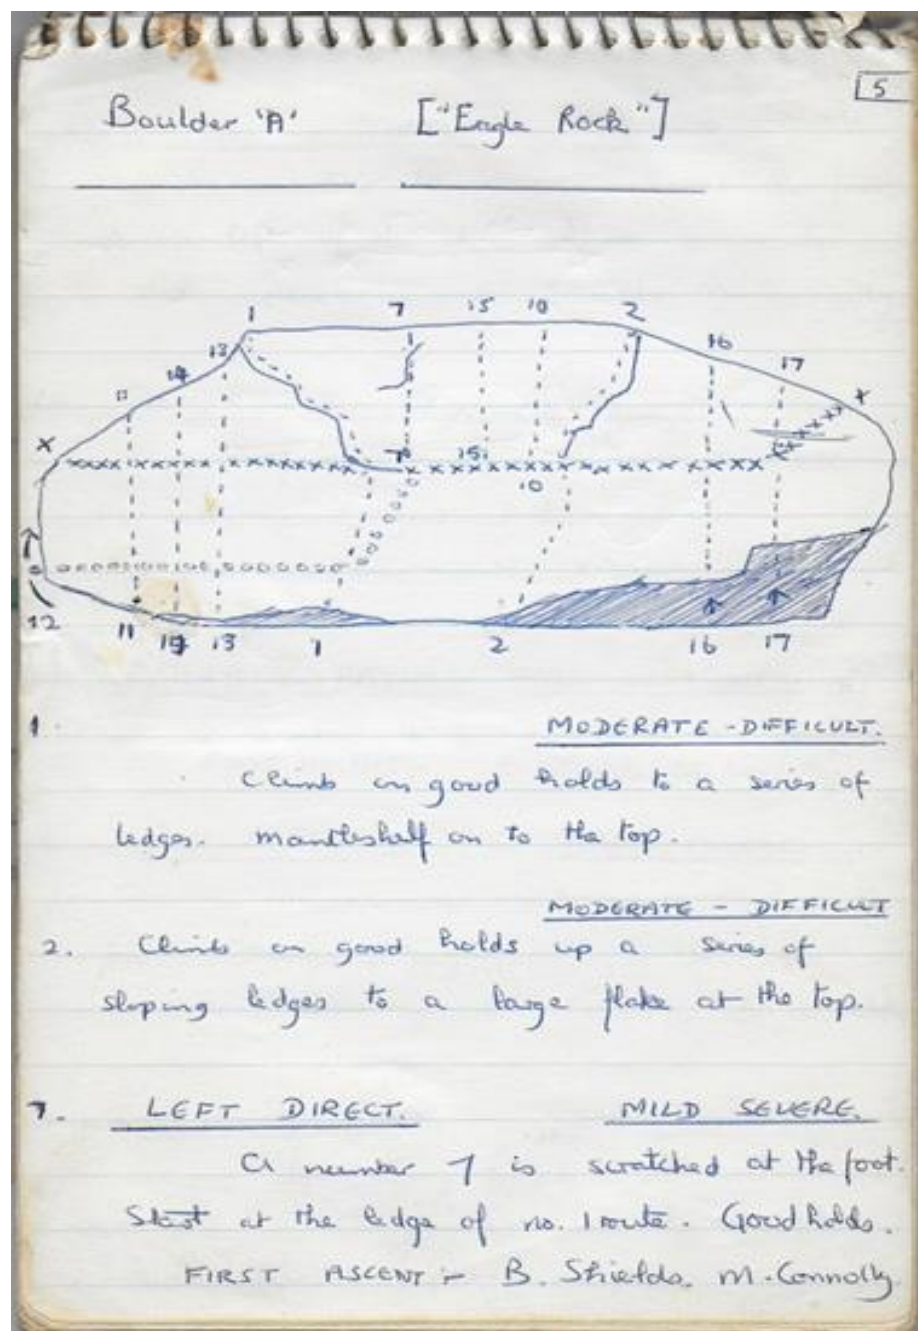 5
Boulder 'A' ["Eagle Rock"]
1 7 15 10 2
13 16
14 17
11 x
x
7 15
10
12
11 14 13 1 2 16 17
1. MODERATE - DIFFICULT.
Climb on good holds to a series of
ledges. mantleshelf on to the top.
MODERATE - DIFFICULT
2. Climb on good holds up a series of
sloping ledges to a large flake at the top.
7. LEFT DIRECT. MILD SEVERE.
A number 7 is scratched at the foot.
Start at the ledge of no. 1 route. Good holds.
FIRST ASCENT :- B. Shields. M. Connolly.